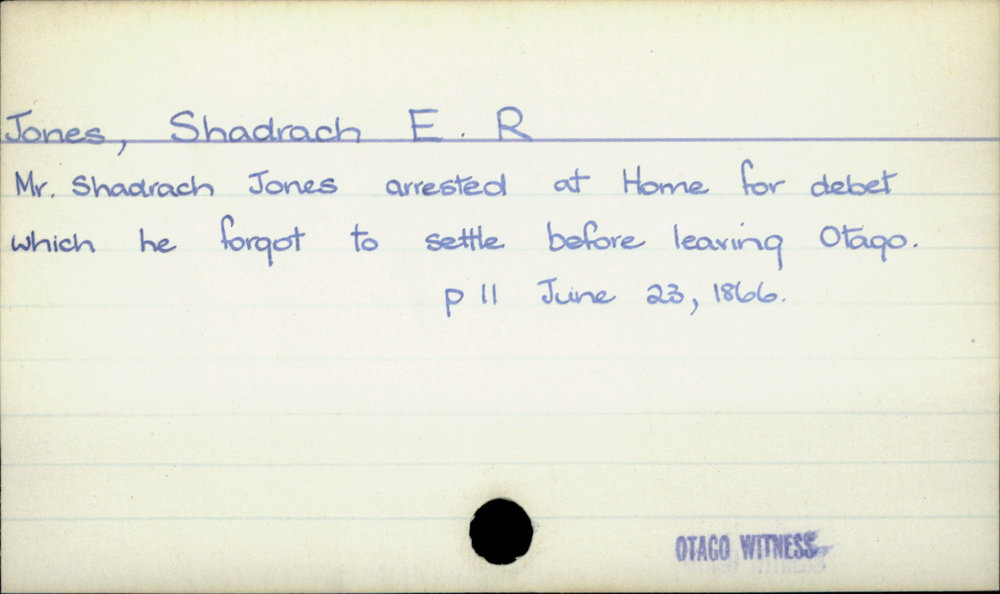 Jones, Shadrach E. R
Mr. Shadrach Jones arrested at Home for debet
which he forgot to settle before leaving Otago.
p 11 June 23, 1866.
OTAGO WITNESS